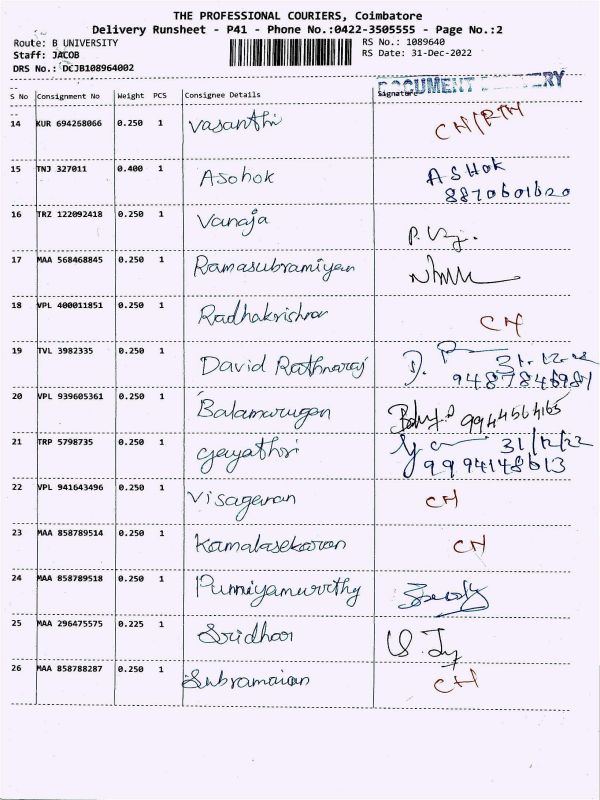 THE PROFESSIONAL COURIERS, Coimbatore
Delivery Runsheet - P41 - Phone No.:0422-3505555 - Page No.:2
Route: B UNIVERSITY RS No.: 1089640
Staff: JACOB RS Date: 31-Dec-2022
DRS No.: DCJB108964002
DOCUMENT DELIVERY
S No Consignment No Weight PCS Consignee Details Signature
14 KUR 694268066 0.250 1 Vasanthi CH/RTN
15 TNJ 327011 0.400 1 Asohok ASHOK
8870601620
16 TRZ 122092418 0.250 1 Vanaja
17 MAA 568468845 0.250 1 Ramasubramiyan
18 VPL 400011851 0.250 1 Radhakrishnan CH
19 TVL 3982335 0.250 1 David Rathnaraj D. 31-12-22
9487846987
20 VPL 939605361 1 0.250 Balamurugan 9944564165
21 TRP 5798735 0.250 1 Gayathri 31/12/22
9994148613
22 VPL 941643496 0.250 1 Visagavan CH
23 MAA 858789514 0.250 1 Kamalasekaran CH
24 MAA 858789518 0.250 1 Punniyamurrthy
25 MAA 296475575 0.225 1 Sridhar
26 MAA 858788287 0.250 1 Subramaian CH